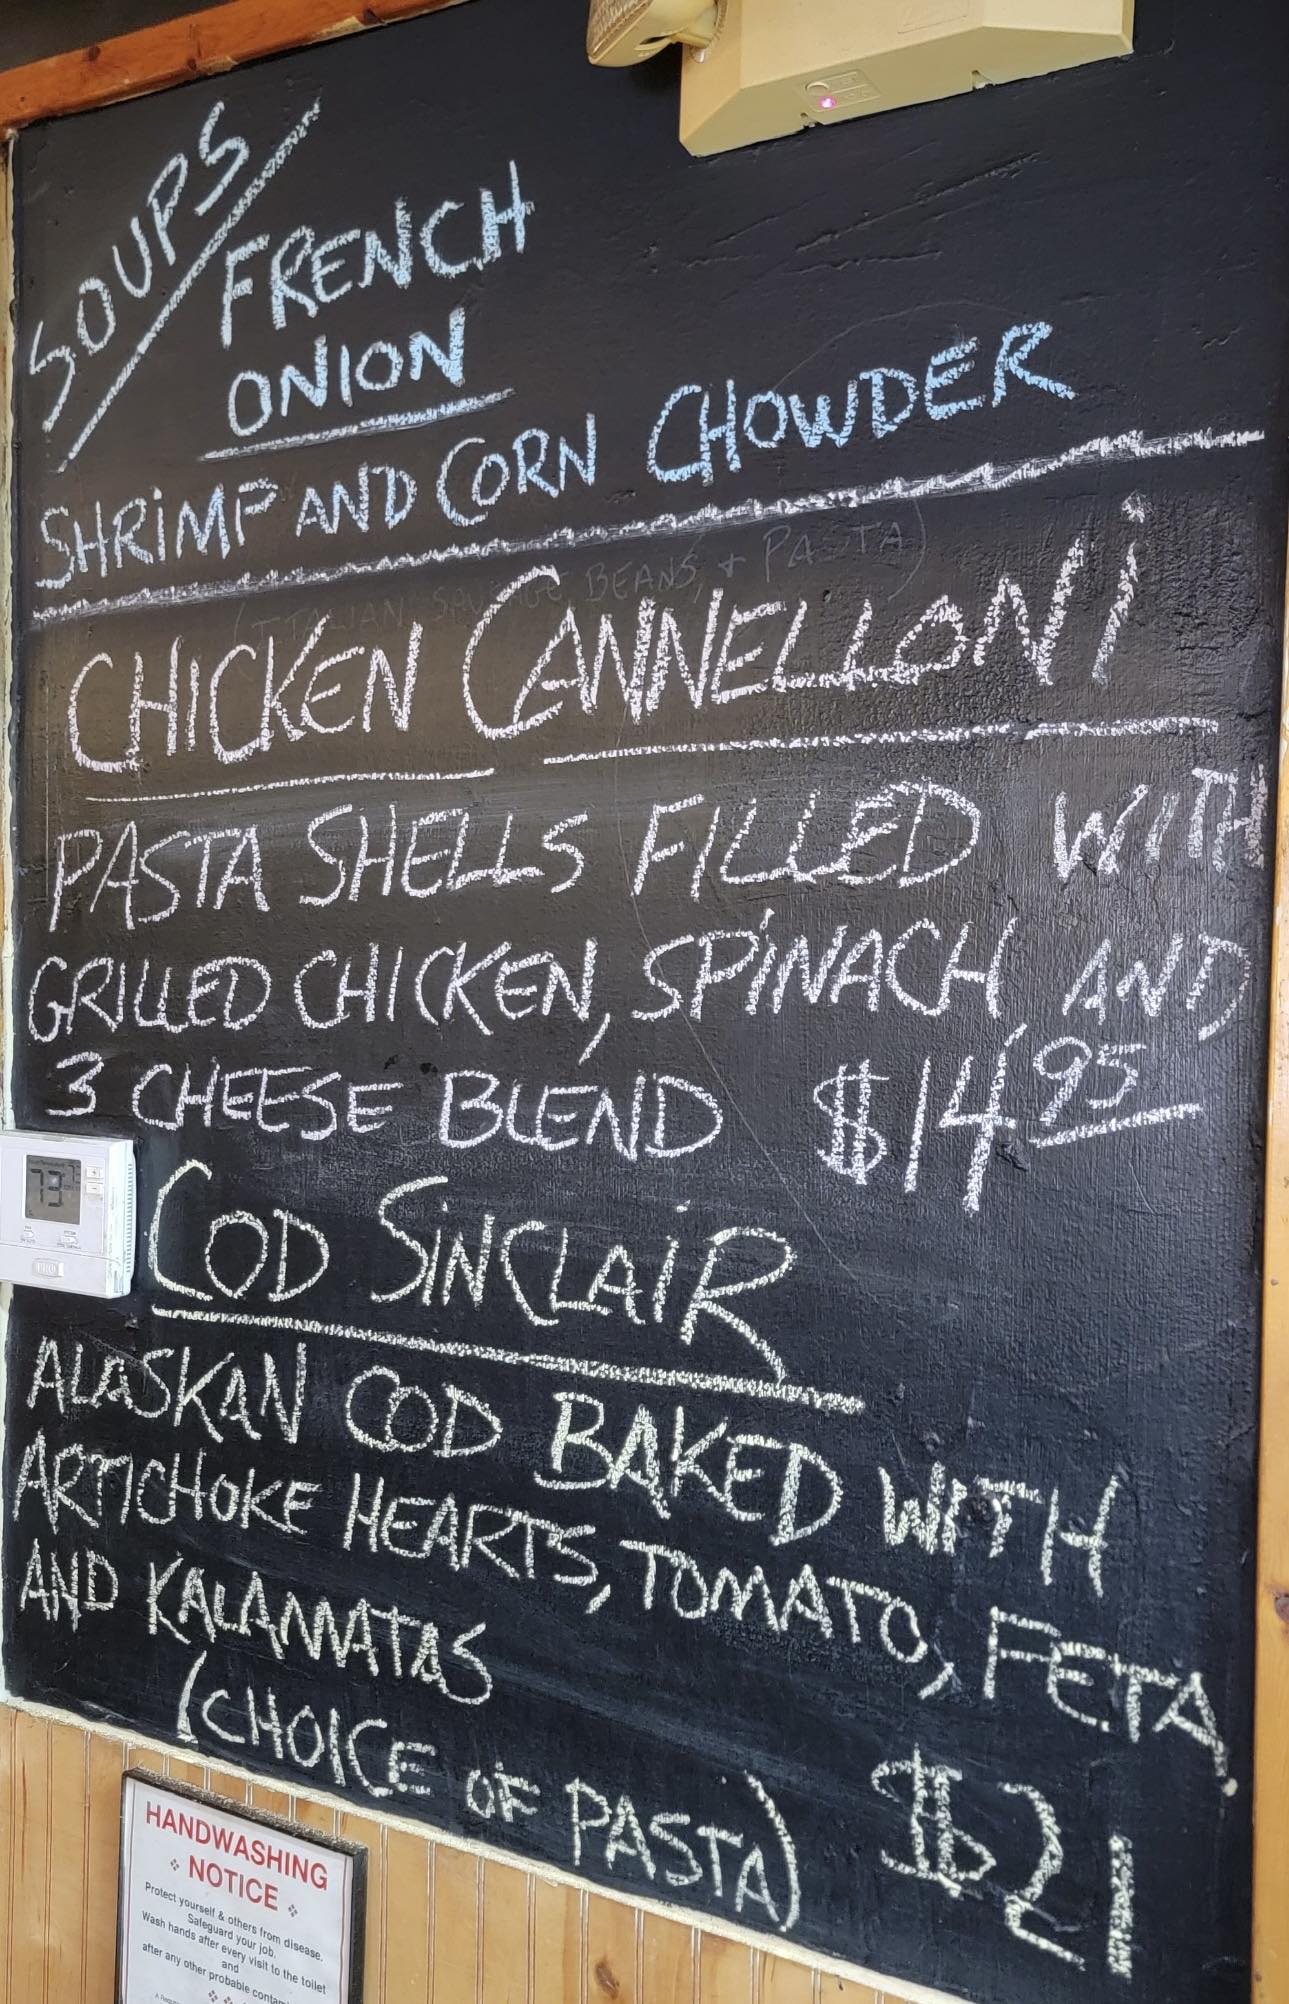 SOUPS
FRENCH
ONION
SHRIMP AND CORN CHOWDER
(ITALIAN SAUSAGE, BEANS, + PASTA)
CHICKEN CANNELLONI
PASTA SHELLS FILLED WITH
GRILLED CHICKEN, SPINACH, AND
3 CHEESE BLEND $14.95
73
PRO
COD SINCLAIR
ALASKAN COD BAKED WITH
ARTICHOKE HEARTS, TOMATO, FETA,
AND KALAMATAS
(CHOICE OF PASTA) $21
HANDWASHING
NOTICE
Protect yourself & others from disease.
Safeguard your job.
Wash hands after every visit to the toilet
and
after any other probable